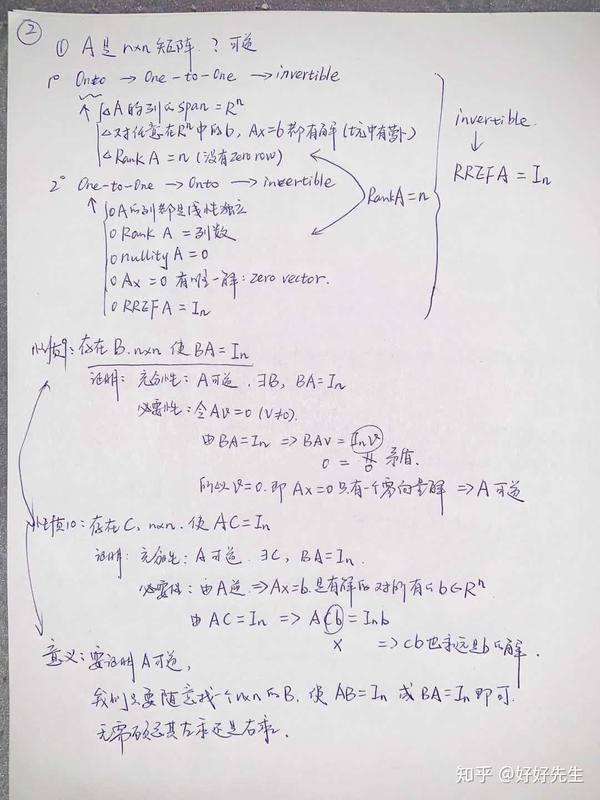 ②
① A是n×n矩阵.？可逆
1° Onto → One-to-One → invertible
△A的列的span = Rⁿ
△对任意在Rⁿ中的b, Ax=b都有解(坑中有萝卜)
△Rank A = n (没有zero row)
2° One-to-One → Onto → invertible
○A的列都是线性独立
○Rank A = 列数
○nullity A = 0
○Ax=0 有唯一解: zero vector.
○RREF A = In
Rank A = n
invertible.
↓
RREF A = In
性质9: 存在B. n×n 使BA=In
证明: 充分性: A可逆. ∃B, BA=In
必要性: 令Av=0 (v≠0).
由BA=In ⇒ BAv = Inv
0 = ∦0 矛盾.
所以v=0. 即Ax=0只有一个零向量解 ⇒ A可逆
性质10: 存在C, n×n. 使AC=In
证明: 充分性: A可逆 ∃C, BA=In.
必要性: 由A逆 ⇒ Ax=b.是有解的对所有的b∈Rⁿ
由AC=In ⇒ ACb = Inb
x ⇒ Cb也永远是b的解.
意义: 要证明A可逆,
我们只要随意找一个n×n的B, 使AB=In 或BA=In即可.
无需顾忌其左乘还是右乘.
知乎 @好好先生